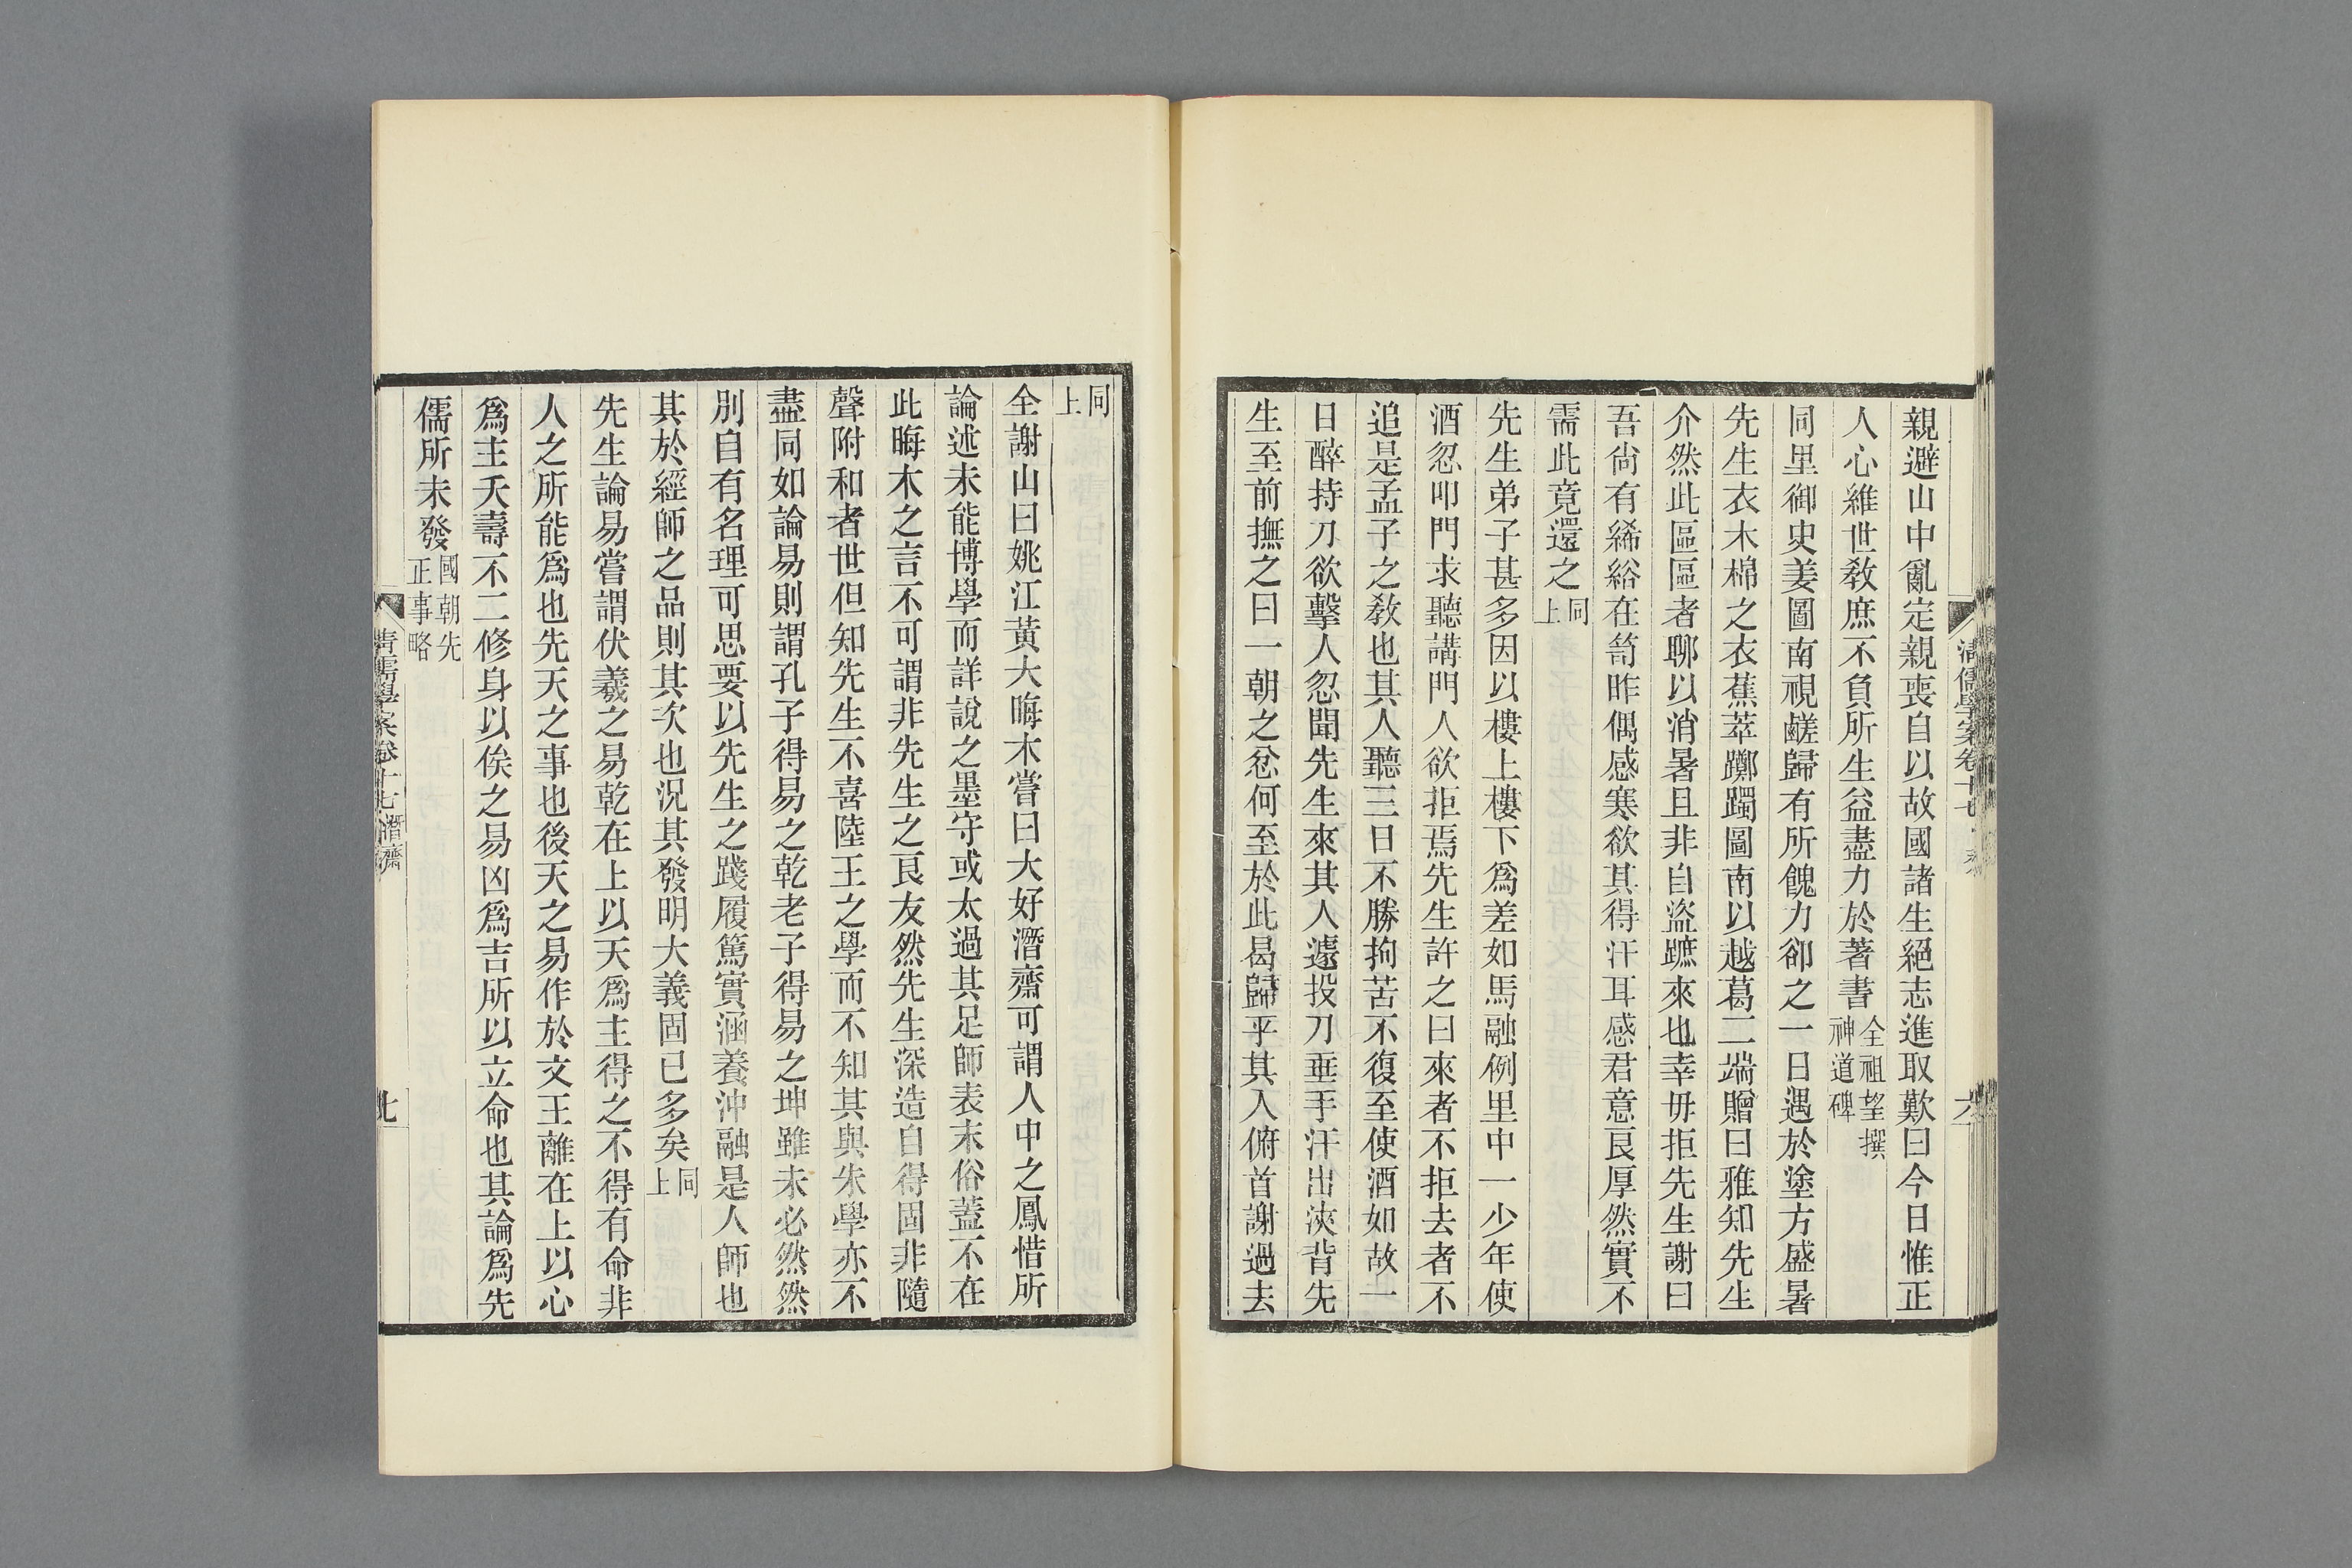 親避山中亂定親喪自以故國諸生絕志進取歎曰今日惟正
人心維世敎庶不負所生益盡力於著書全祖望撰神道碑
同里御史姜圖南視鹺歸有所餽力卻之一日遇於塗方盛暑
先生衣木棉之衣蕉萃躑躅圖南以越葛二端贈曰雅知先生
介然此區區者聊以消暑且非自盜蹠來也幸毋拒先生謝曰
吾尙有絺綌在笥昨偶感寒欲其得汗耳感君意良厚然實不
需此竟還之同上
先生弟子甚多因以樓上樓下爲差如馬融例里中一少年使
酒忽叩門求聽講門人欲拒焉先生許之曰來者不拒去者不
追是孟子之敎也其人聽三日不勝拘苦不復至使酒如故一
日醉持刀欲擊人忽聞先生來其人遽投刀垂手汗出浹背先
生至前撫之曰一朝之忿何至於此曷歸乎其人俯首謝過去
同上
全謝山曰姚江黃大晦木嘗曰大好潛齋可謂人中之鳳惜所
論述未能博學而詳說之墨守或太過其足師表末俗蓋不在
此晦木之言不可謂非先生之良友然先生深造自得固非隨
聲附和者世但知先生不喜陸王之學而不知其與朱學亦不
盡同如論易則謂孔子得易之乾老子得易之坤雖未必然然
別自有名理可思要以先生之踐履篤實涵養沖融是人師也
其於經師之品則其次也況其發明大義固已多矣同上
先生論易嘗謂伏羲之易乾在上以天爲主得之不得有命非
人之所能爲也先天之事也後天之易作於文王離在上以心
爲主夭壽不二修身以俟之易凶爲吉所以立命也其論爲先
儒所未發國朝先正事略
清儒學案卷十七 潛齋
七